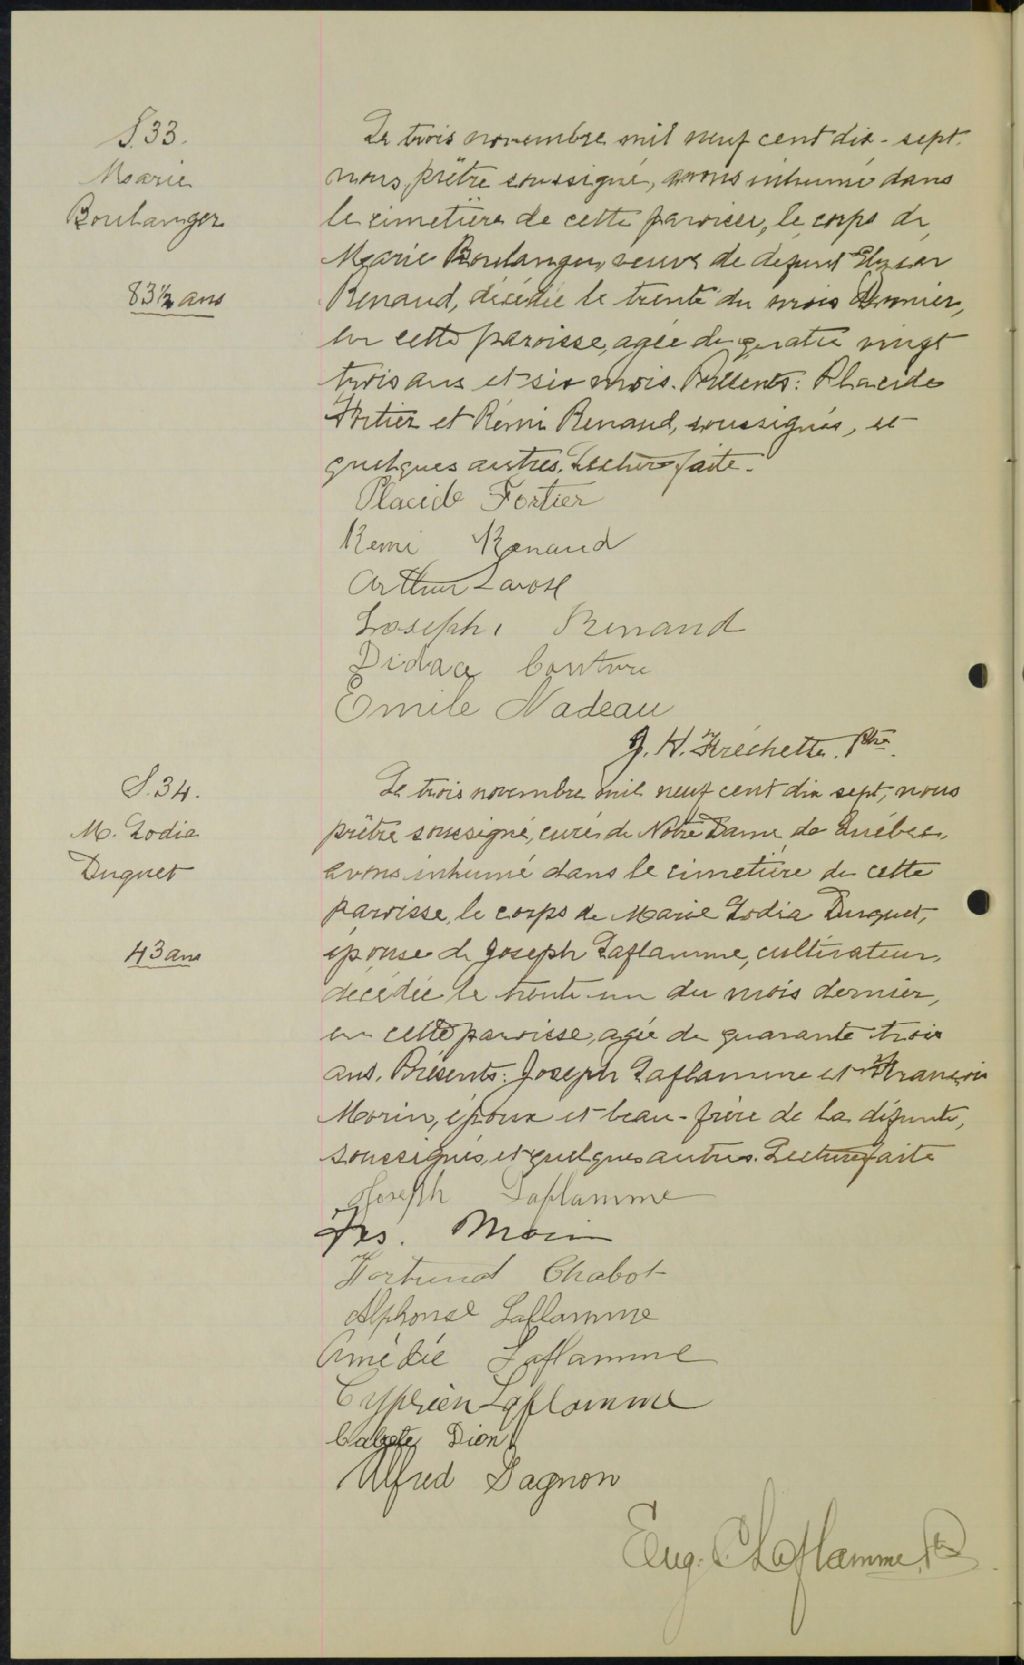 S.33.
Marie
Boulanger
83½ ans
Le trois novembre mil neuf cent dix-sept,
nous, prêtre soussigné, avons inhumé dans
le cimetière de cette paroisse, le corps de
Marie Boulanger, veuve de défunt Elzéar
Renaud, décédée le trente du mois dernier,
en cette paroisse, agée de quatre vingt
trois ans et six mois. Présents: Placide
Fortier et Rémi Renaud, soussignés, et
quelques autres. Lecture faite.
Placide Fortier
Remi Renaud
Arthur Larose
Joseph Renaud
Didace Couture
Emile Nadeau
J. H. Fréchette. Ptre.
S.34.
M. Lodia
Duquet
43 ans
Le trois novembre mil neuf cent dix sept, nous
prêtre soussigné, curé de Notre Dame de Québec,
avons inhumé dans le cimetière de cette
paroisse, le corps de Marie Lodia Duquet,
épouse de Joseph Laflamme, cultivateur,
décédée le trente un du mois dernier,
en cette paroisse, agée de quarante trois
ans. Présents: Joseph Laflamme et François
Morin, époux et beau-frère de la défunte,
soussignés, et quelques autres. Lecture faite
Joseph Laflamme
Frs. Morin
Fortunat Chabot
Alphonse Laflamme
Amédée Laflamme
Cyprien Laflamme
Dion
Alfred Gagnon
Eug. C. Laflamme, Ptre